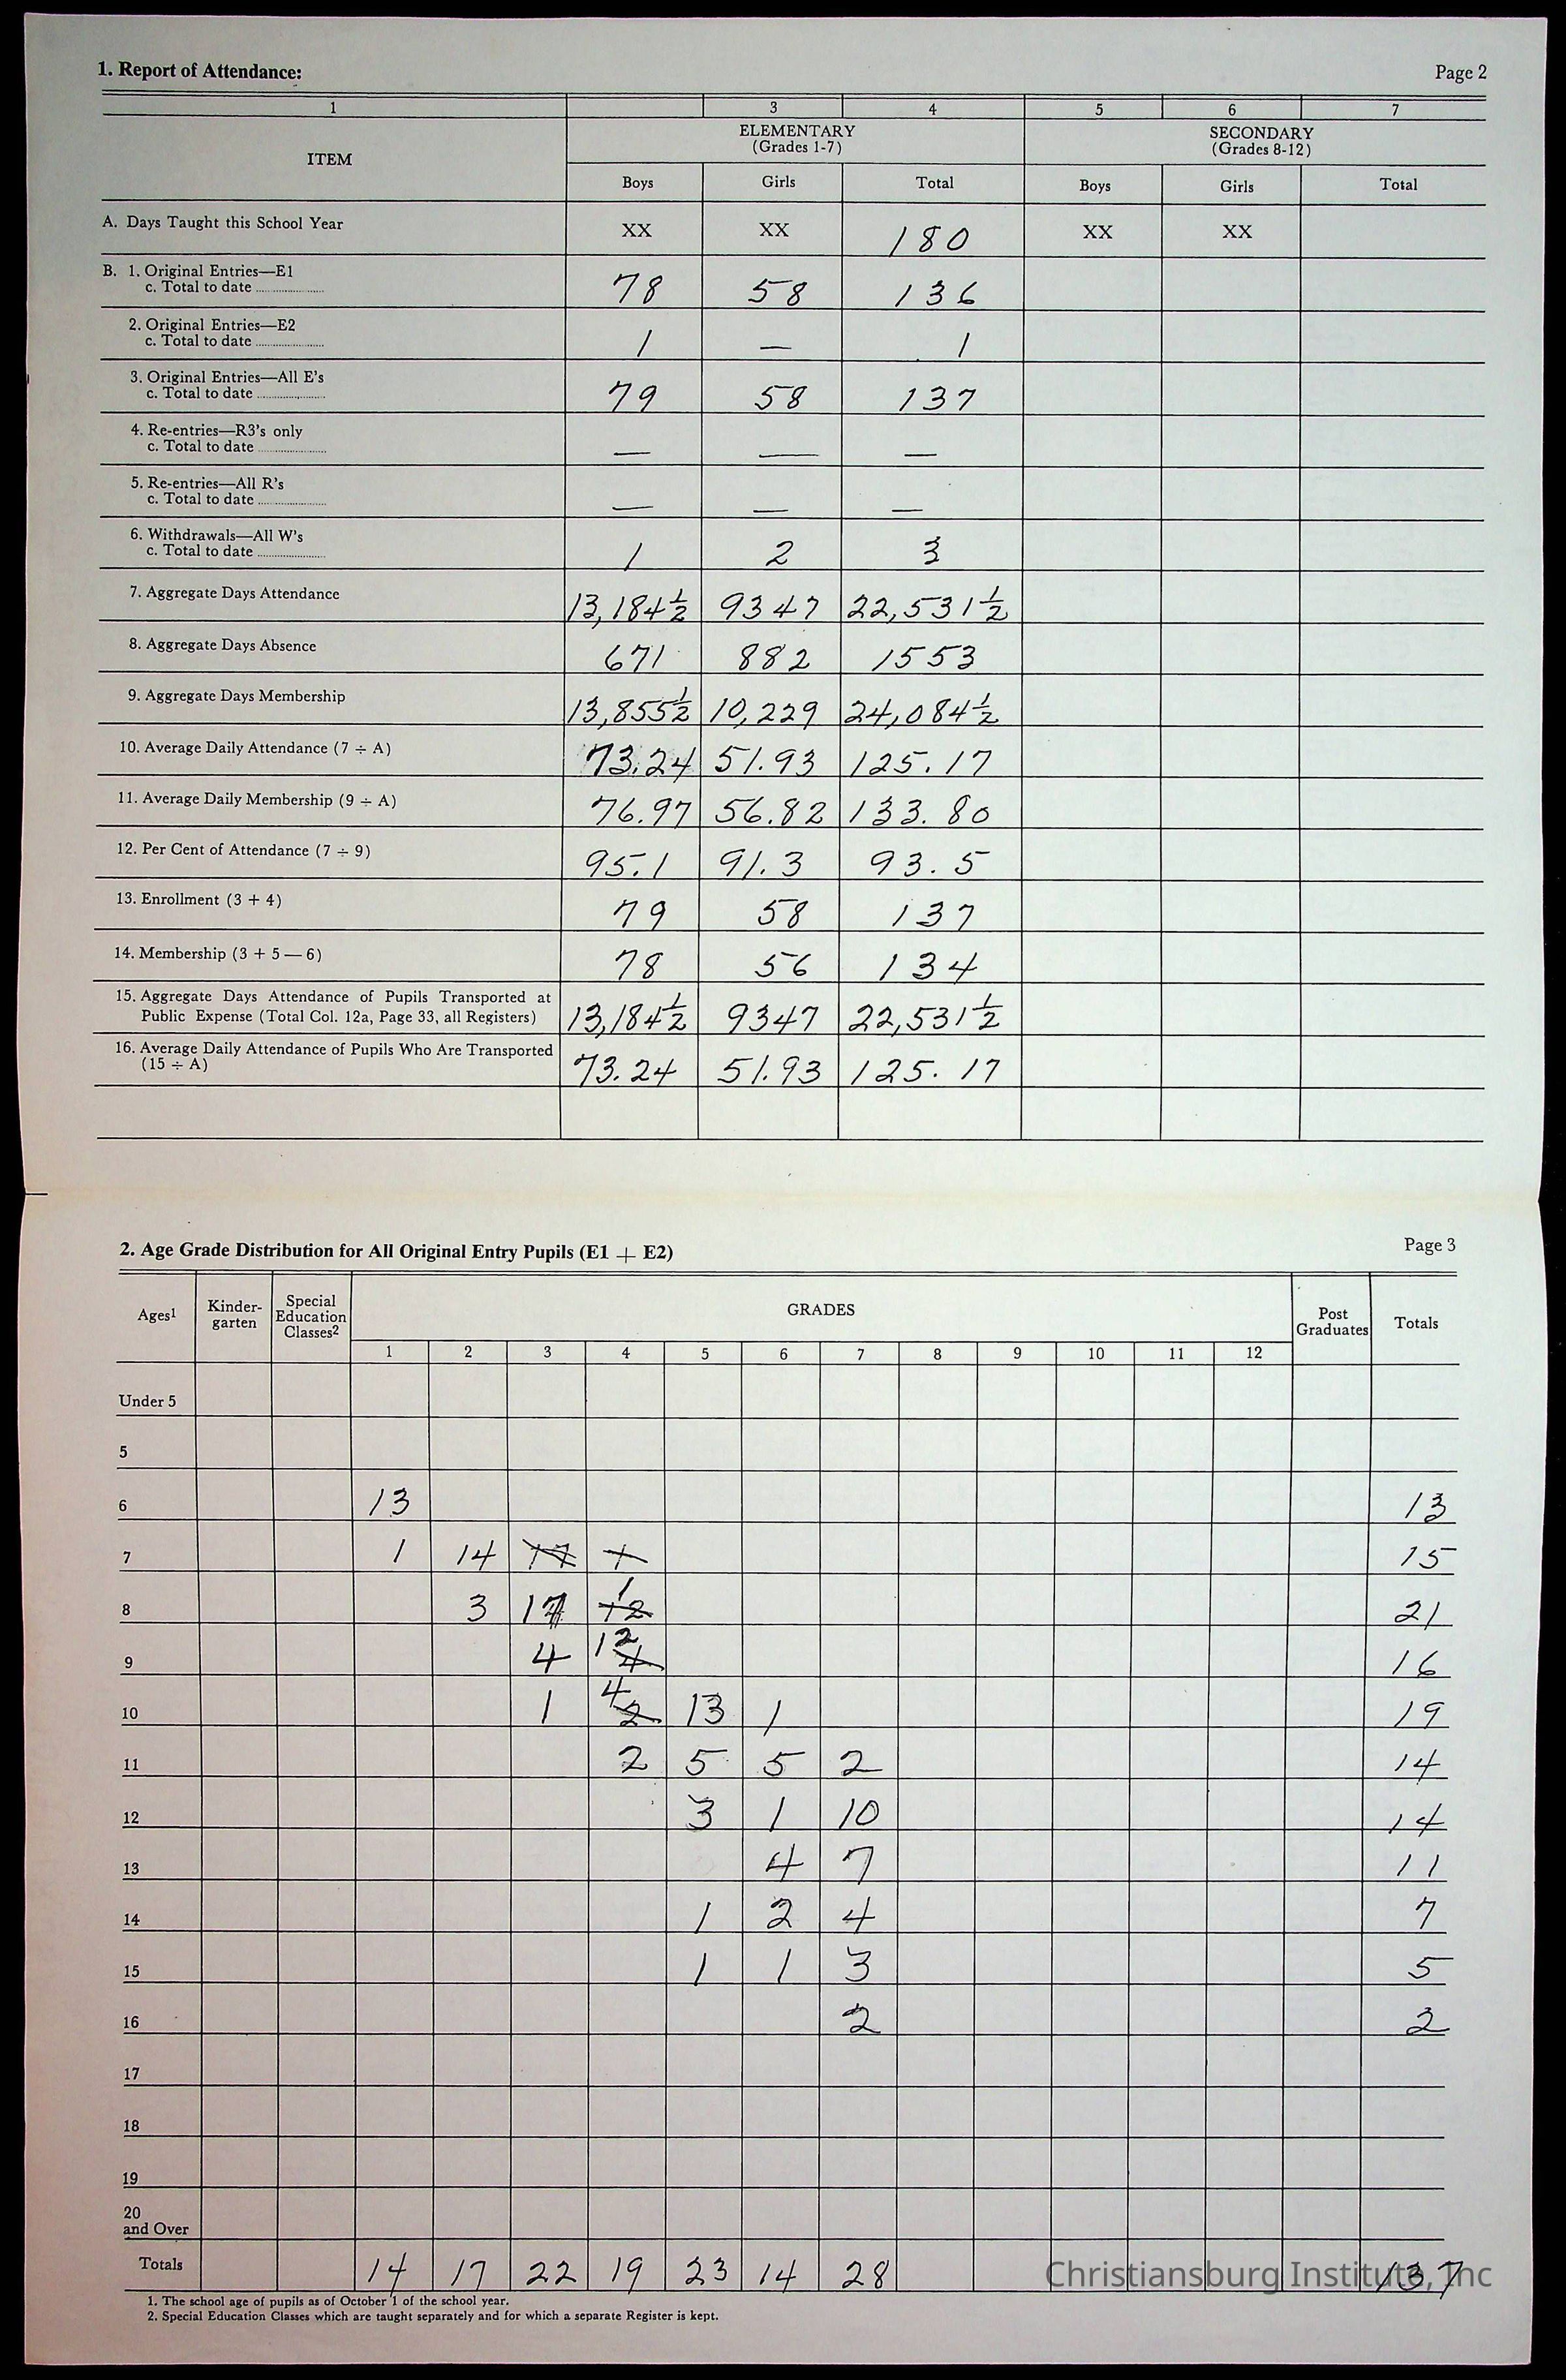 1. Report of Attendance:
Page 2
1 3 4 5 6 7
ITEM
ELEMENTARY
(Grades 1-7)
SECONDARY
(Grades 8-12)
Boys Girls Total Boys Girls Total
A. Days Taught this School Year XX XX 180 XX XX
B. 1. Original Entries—E1
c. Total to date 78 58 136
2. Original Entries—E2
c. Total to date 1 — 1
3. Original Entries—All E's
c. Total to date 79 58 137
4. Re-entries—R3's only
c. Total to date — — —
5. Re-entries—All R's
c. Total to date — — —
6. Withdrawals—All W's
c. Total to date 1 2 3
7. Aggregate Days Attendance 13,184½ 9347 22,531½
8. Aggregate Days Absence 671 882 1553
9. Aggregate Days Membership 13,855½ 10,229 24,084½
10. Average Daily Attendance (7 ÷ A) 73.24 51.93 125.17
11. Average Daily Membership (9 ÷ A) 76.97 56.82 133.80
12. Per Cent of Attendance (7 ÷ 9) 95.1 91.3 93.5
13. Enrollment (3 + 4) 79 58 137
14. Membership (3 + 5 — 6) 78 56 134
15. Aggregate Days Attendance of Pupils Transported at
Public Expense (Total Col. 12a, Page 33, all Registers) 13,184½ 9347 22,531½
16. Average Daily Attendance of Pupils Who Are Transported
(15 ÷ A) 73.24 51.93 125.17
2. Age Grade Distribution for All Original Entry Pupils (E1 + E2)
Page 3
Ages1
Kinder-
garten
Special
Education
Classes2
GRADES
Post
Graduates
Totals
1 2 3 4 5 6 7 8 9 10 11 12
Under 5
5
6 13 13
7 1 14 17 1 15
8 3 17 1 12 21
9 4 12 4 16
10 1 4 2 13 1 19
11 2 5 5 2 14
12 3 1 10 14
13 4 7 11
14 1 2 4 7
15 1 1 3 5
16 2 2
17
18
19
20
and Over
Totals 14 17 22 19 23 14 28 137
Christiansburg Institute, Inc
1. The school age of pupils as of October 1 of the school year.
2. Special Education Classes which are taught separately and for which a separate Register is kept.